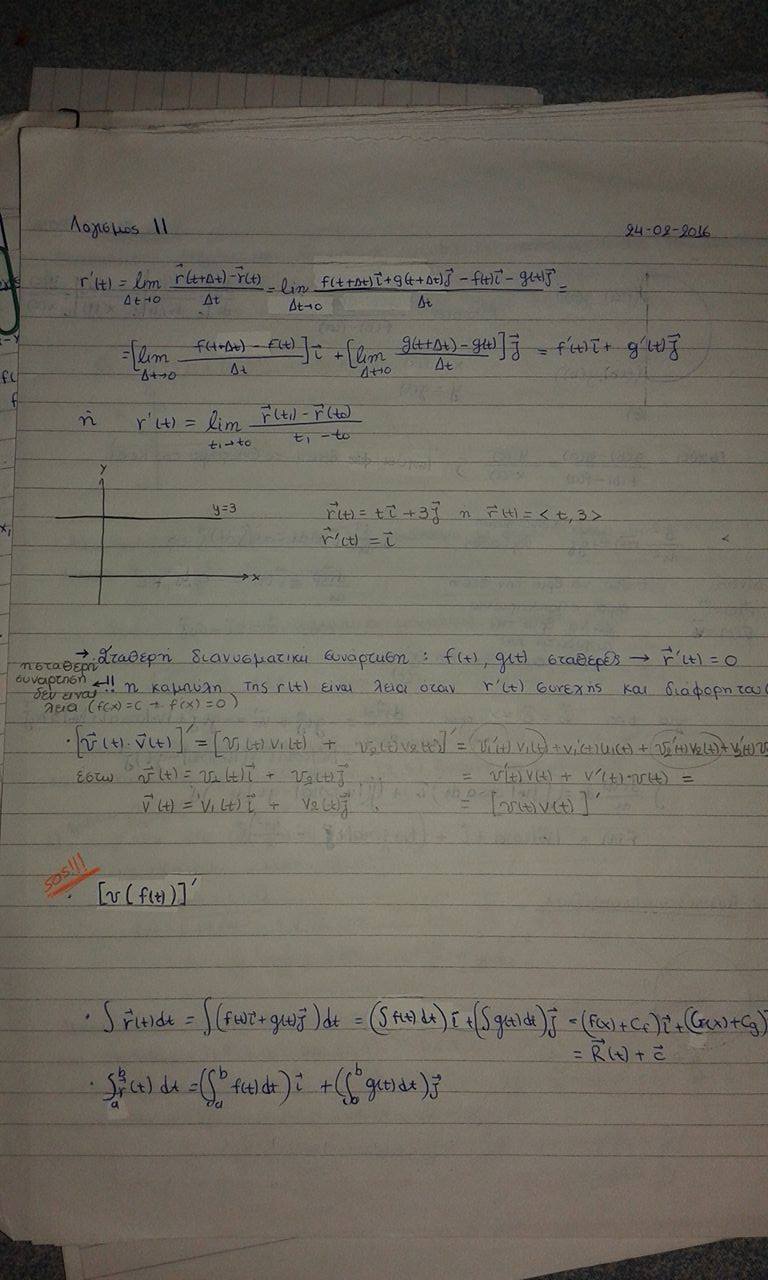 Λογισμος II 24-02-2016
r'(t) = lim Δt→0 (r⃗(t+Δt) - r⃗(t))/Δt = lim Δt→0 (f(t+Δt)i⃗ + g(t+Δt)j⃗ - f(t)i⃗ - g(t)j⃗)/Δt =
= [lim Δt→0 (f(t+Δt) - f(t))/Δt] i⃗ + [lim Δt→0 (g(t+Δt) - g(t))/Δt] j⃗ = f'(t)i⃗ + g'(t)j⃗
ή r'(t) = lim t₁→t₀ (r⃗(t₁) - r⃗(t₀))/(t₁ - t₀)
y
y=3
r⃗(t) = t i⃗ + 3j⃗ η r⃗(t) = < t, 3 >
r⃗'(t) = i⃗
x
→ Σταθερή διανυσματικη συναρτηση : f(t), g(t) σταθερές → r⃗'(t) = 0
η σταθερη
συναρτηση ←!! η καμπυλη της r(t) ειναι λεια οταν r'(t) συνεχης και διάφορη του
δεν ειναι
λεια (f(x) = c → f(x) = 0)
· [v⃗(t) · v⃗(t)]' = [v₁(t) v₁(t) + v₂(t) v₂(t)]' = v₁'(t) v₁(t) + v₁'(t) u₁(t) + v₂'(t) v₂(t) + v₂'(t)
έστω v⃗(t) = v₂(t)i⃗ + v₂(t)j⃗ = v'(t) v(t) + v'(t)·v(t) =
v⃗(t) = v₁(t)i⃗ + v₂(t)j⃗ = [v(t) v(t)]'
SOS!!!
· [v(f(t))]'
· ∫ r⃗(t)dt = ∫(f(t)i⃗ + g(t)j⃗)dt = (∫f(t)dt)i⃗ + (∫g(t)dt)j⃗ = (F(x) + C_f)i⃗ + (G(x) + C_g)
= R⃗(t) + c⃗
· ∫ₐᵇ r⃗(t) dt = (∫ₐᵇ f(t)dt) i⃗ + (∫ᵇ g(t)dt) j⃗